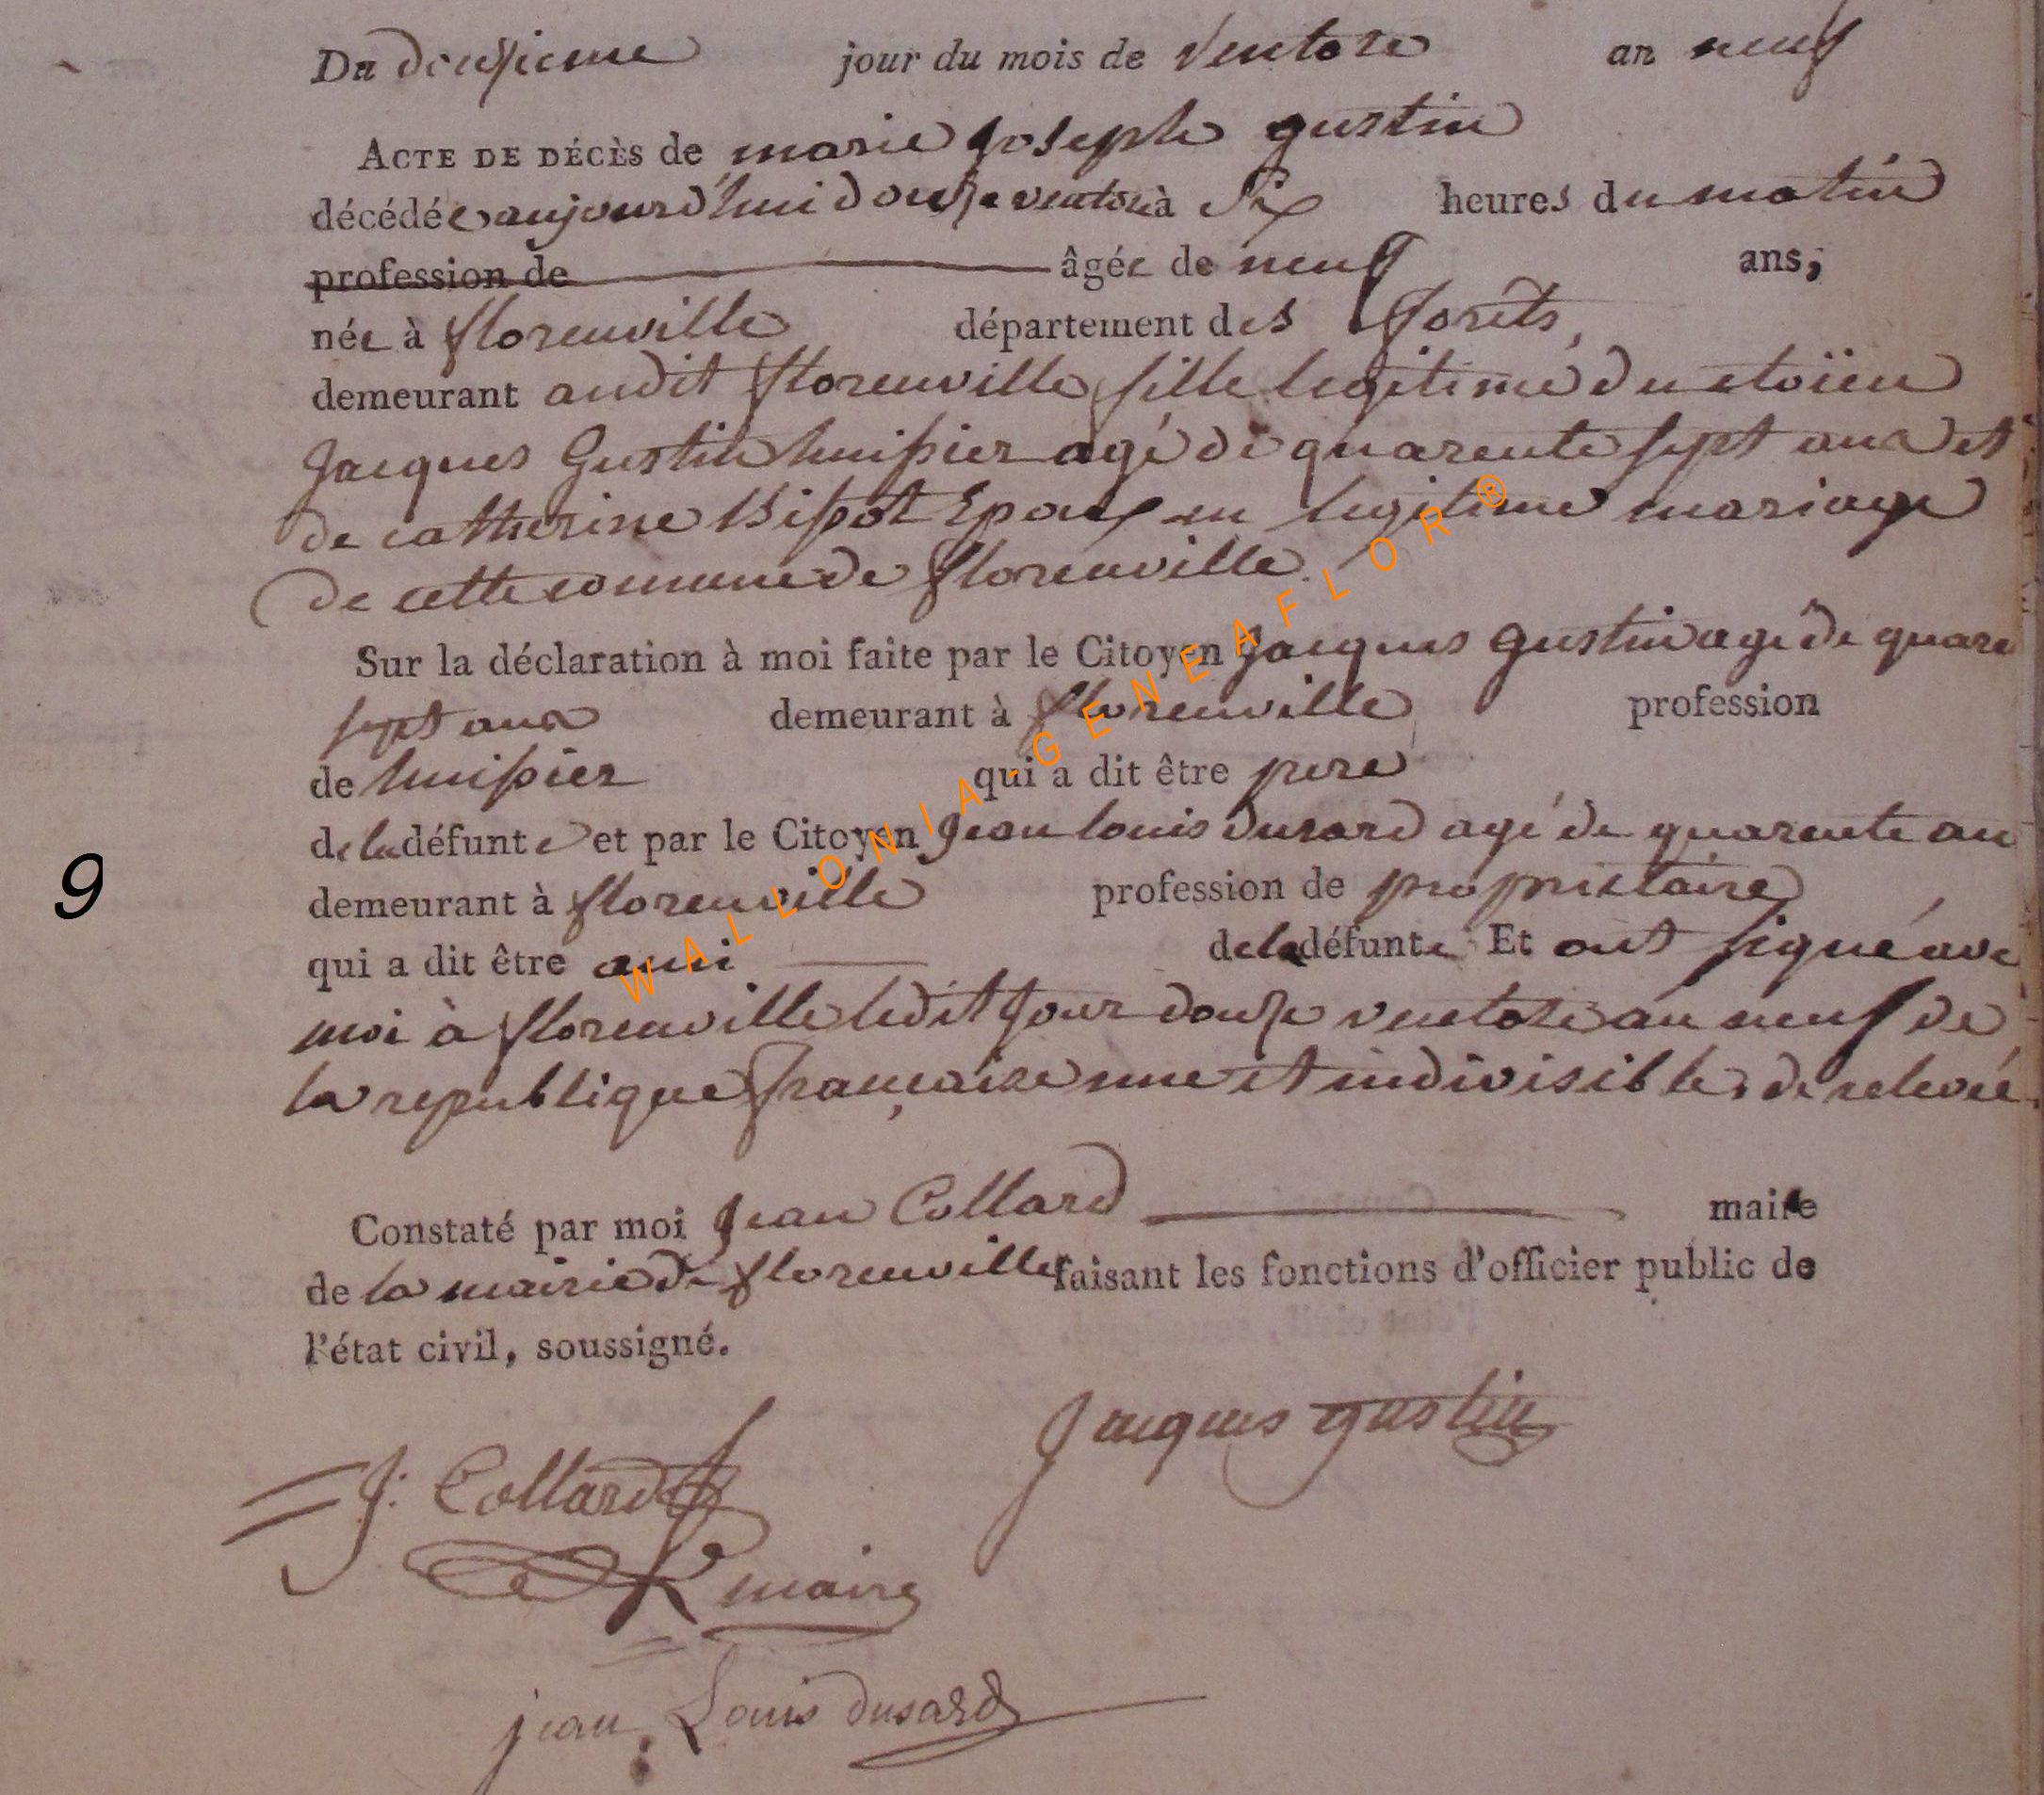 Du dousieme jour du mois de ventose an neuf
ACTE DE DÉCÈS de marie Joseph gustin
décédée aujourd'hui douse ventose à Six heures du matin
profession de âgée de neuf ans,
née à florenville département des forêts,
demeurant audit florenville fille legitime du citoïen
Jacques Gustin huissier agé de quarente sept ans et
de catherine Bissot Epoux en legitime mariage
de cette comune de florenville.
Sur la déclaration à moi faite par le Citoyen Jacques Gustin agé de quare
sept ans demeurant à florenville profession
de huissier qui a dit être pere
de la défunte et par le Citoyen Jean louis dusard agé de quarente an
demeurant à florenville profession de propriétaire
qui a dit être ami de la défunte Et ont signé ave
moi à florenville ledit Jour douse ventose an neuf de
la republique française une et indivisible, de relevée
Constaté par moi Jean Collard maire
de la mairie de florenville faisant les fonctions d'officier public de
l'état civil, soussigné.
Jacques gustin
J: Collard
maire
jean Louis dusard
9
WALLONIA-GENEAFLOR®